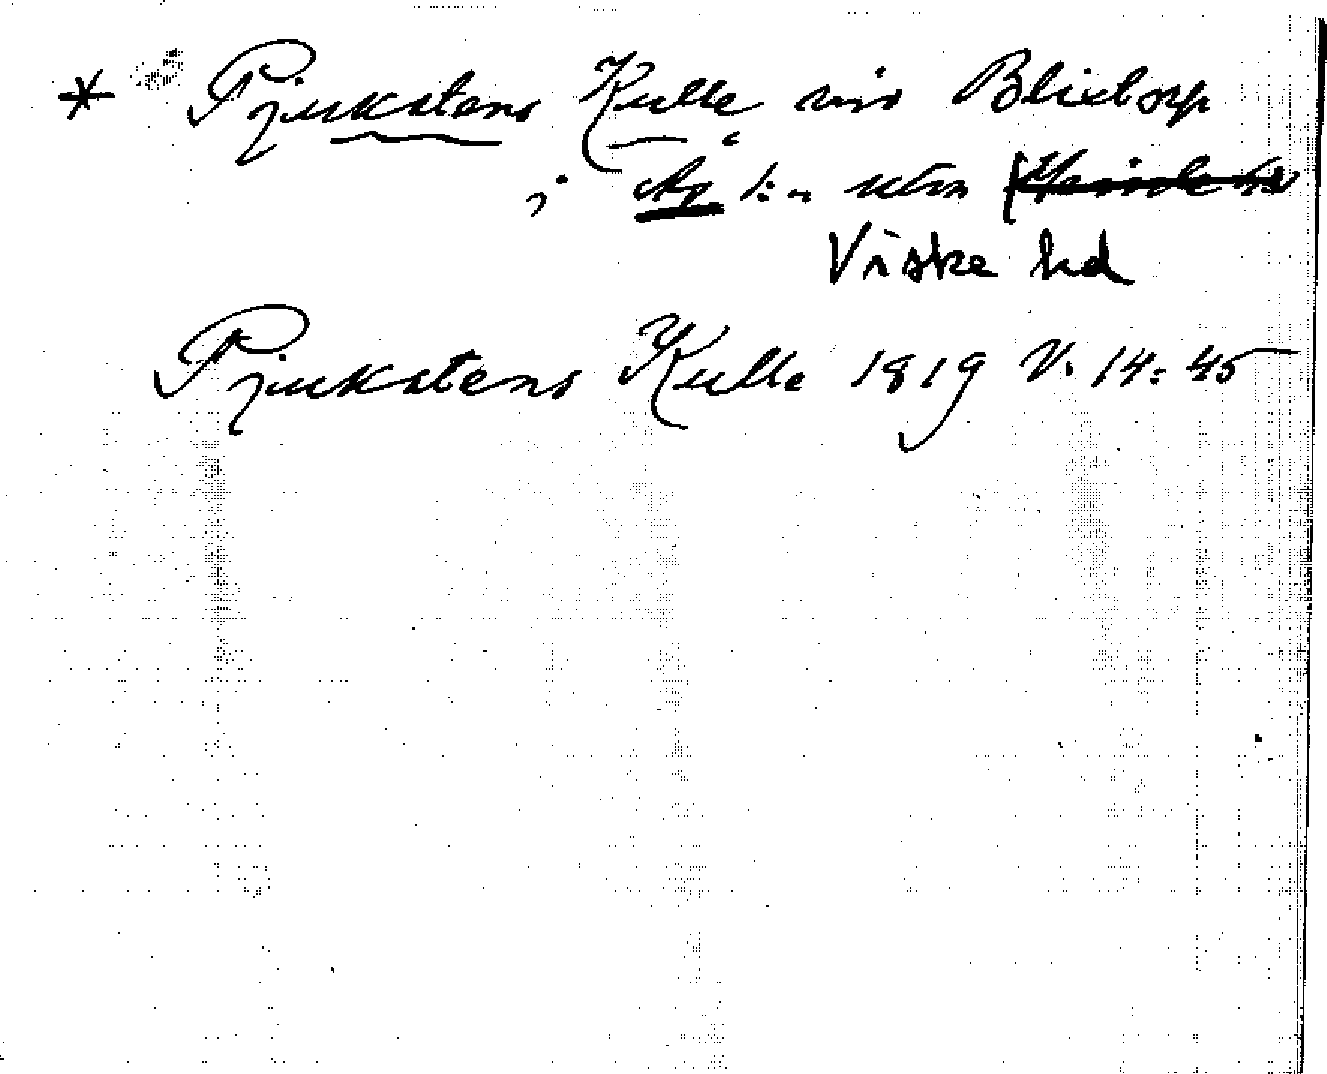 * Pjukstens Kulle vid Blixtorp
i Ås sn utm
Viske hd
Pjukstens Kulle 1819 V. 14: 45